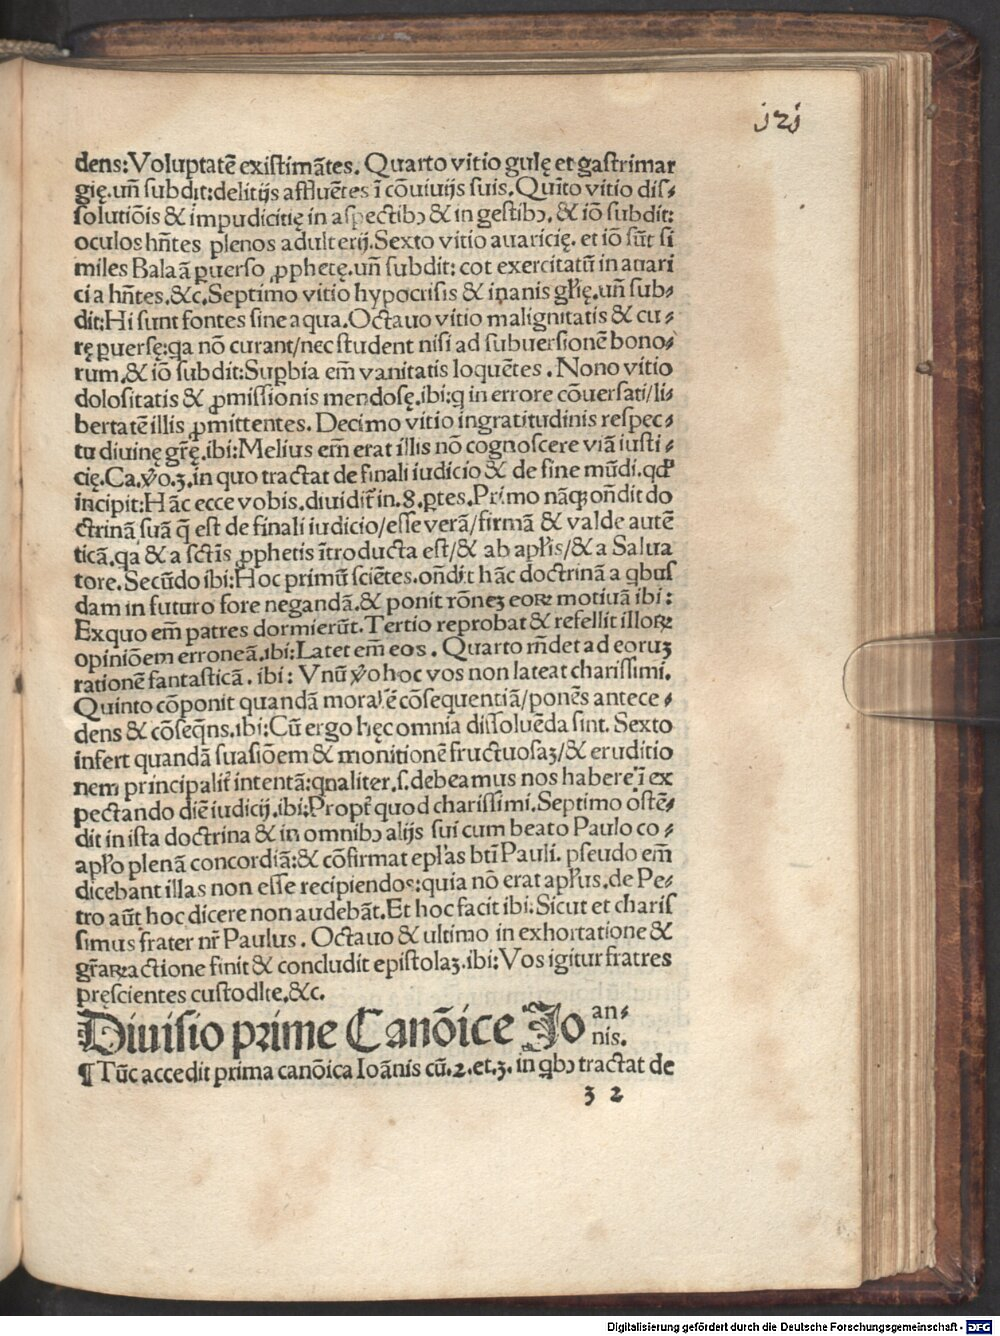 121
dens:Voluptatē existimātes. Quarto vitio gulę et gastrimar
gię.un̄ subdit:delitijs affluētes ī cōuiuijs suis. Quīto vitio dis⸗
solutiōis & impudicitię in aspectibꝯ & in gestibꝯ, & iō subdit:
oculos hn̄tes plenos adulterij. Sexto vitio auaricię. et iō sūt si
miles Balaā ꝑuerso ꝓphetę.un̄ subdit: cor exercitatū in auari
cia hn̄tes.&c. Septimo vitio hypocrisis & inanis glr̄ię.un̄ sub⸗
dit:Hi sunt fontes sine aqua. Octauo vitio malignitatis & cu⸗
rę ꝑuersę:qa nō curant/nec student nisi ad subuersionē bono⸗
rum,& iō subdit:Supbia em̄ vanitatis loquētes. Nono vitio
dolositatis & ꝓmissionis mendosę.ibi:q in errore cōuersati/li⸗
bertatē illis ꝓmittentes. Decimo vitio ingratitudinis respec⸗
tu diuinę gr̄ę.ibi:Melius em̄ erat illis nō cognoscere viā iusti⸗
cię.Ca.v̊o.3.in quo tractat de finali iudicio & de fine mūdi.qd̄
incipit:Hāc ecce vobis.diuidit̄ in.8.ꝑtes.Primo nāqꝫ on̄dit do
ctrinā suā q̄ est de finali iudicio/esse verā/firmā & valde autē
ticā.qa & a sctīs ꝓphetis ītroducta est/& ab apl̄is/& a Salua
tore. Secūdo ibi:Hoc primū sciētes.on̄dit hāc doctrinā a qbus
dam in futuro fore negandā.& ponit rōneꝫ eoꝝ motiuā ibi:
Exquo em̄ patres dormierūt. Tertio reprobat & refellit illoꝝ
opiniōem erroneā.ibi:Latet em̄ eos. Quarto rn̄det ad eoruꝫ
rationē fantasticā. ibi: Vnū v̊o hoc vos non lateat charissimi.
Quinto cōponit quandā moralē cōsequentiā/ponēs antece⸗
dens & cōseqn̄s.ibi:Cū ergo hęc omnia dissoluēda sint. Sexto
infert quandā suasiōem & monitionē fructuosaꝫ/& eruditio
nem principalit̄ intentā:qualiter.s.debeamus nos habere ī ex
pectando diē iudicij.ibi:Propt̄ quod charissimi. Septimo ostē⸗
dit in ista doctrina & in omnibꝯ alijs sui cum beato Paulo co⸗
apl̄o plenā concordiā:& cōfirmat epl̄as bt̄i Pauli. pseudo em̄
dicebant illas non esse recipiendos:quia nō erat apl̄us.de Pe⸗
tro aūt hoc dicere non audebāt.Et hoc facit ibi:Sicut et charis
simus frater nr̄ Paulus. Octauo & ultimo in exhortatione &
gr̄aꝝ actione finit & concludit epistolaꝫ.ibi:Vos igitur fratres
pręscientes custodite.&c.
Diuisio prime Canōice Joan⸗
nis.
¶Tūc accedit prima canōica Ioānis cū.2.et.3.in qbꝯ tractat de
3 2
Digitalisierung gefördert durch die Deutsche Forschungsgemeinschaft - DFG